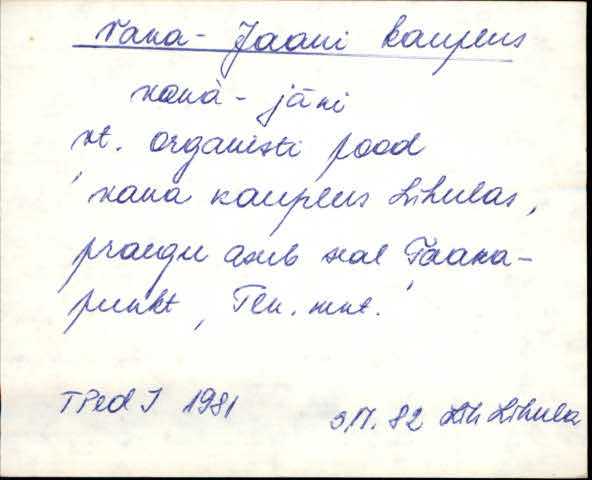 Vana-Jaani kauplus
vanà-jāni
vt. organisti pood
'vana kauplus Lihulas,
praegu asub seal Taara-
punkt, Len. mnt.'
TPed I 1981 3/V. 82 Lih Lihula